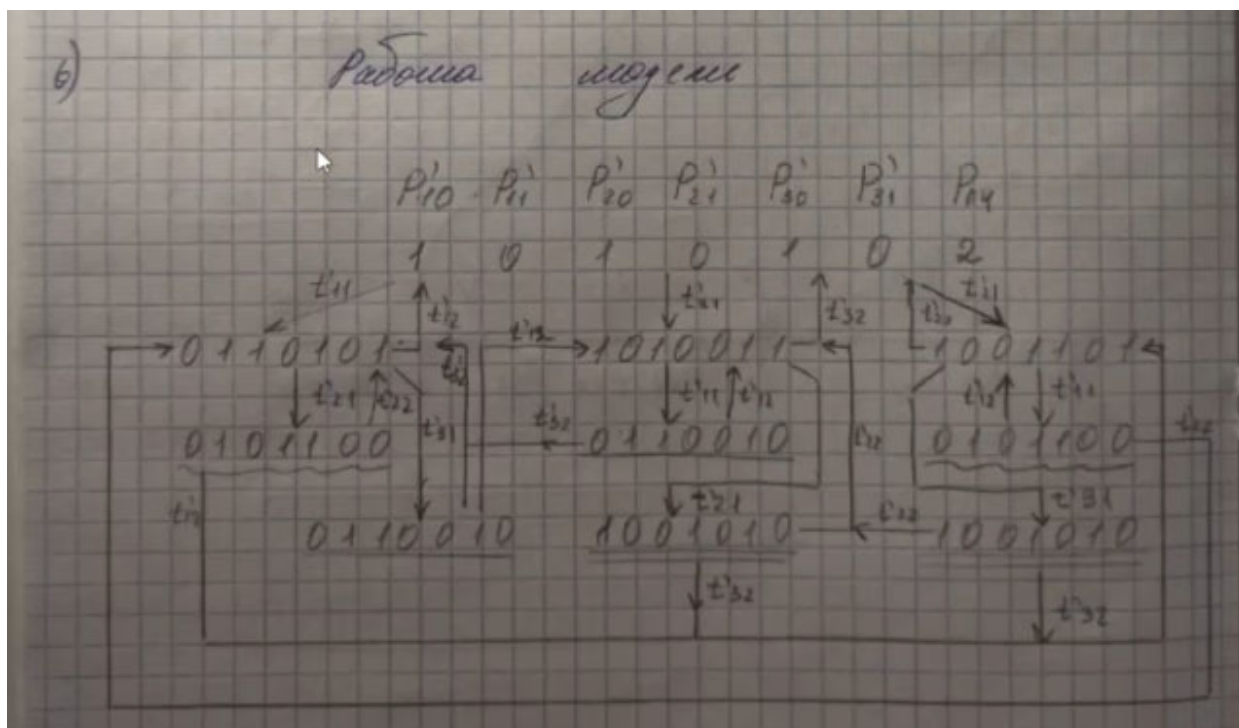 б) Работа модели
P'10 P'11 P'20 P'21 P'30 P'31 Pпч
1 0 1 0 1 0 2
t'11 t'12 t'21 t'32 t'21
0110101 t'12 1010011 1001101
t'21 t'22 t'31 t'11 t'12 t'12 t'11
0101100 t'32 0110010 0101100
t'21 t'31
0110010 1001010 1001010
t'32 t'32